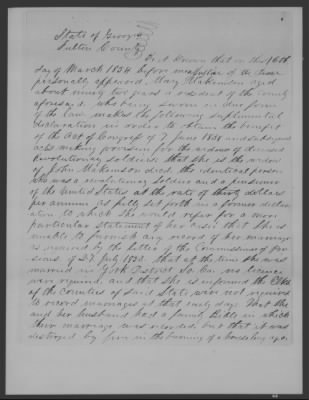 State of Georgia
Fulton County
Be it known that on this 16th
day of March 1854 before me a Justice of the Peace
personally appeared Mary Makemson aged
about ninety two years a resident of the County
aforesaid who being sworn in due form
of the law makes the following suplimental
declaration in order to obtain the benefit
of the act of Congress of 7 June 1838 and subsequent
acts making provision for the widows of deceased
Revolutionary soldiers that she is the widow
of John Makemson decd. the identical person
who was a revolutionary soldier and a pensioner
of the United States at the rate of thirty dollars
per annum as fully set forth in a former declar
ation to which she would refer for a more
particular statement of her case that she is
unable to furnish any record of her marriage
as required by the letter of the Commissioner of Pen
sions of 27 July 1853. that at the time she was
married in York District So. Ca. no license
were required, and that she is informed the Clerks
of the Counties of said State were not required
to record marriages at that early day. That she
and her husband had a family Bible in which
their marriage was recorded, but that it was
destroyed by fire in the burning of a house long ago